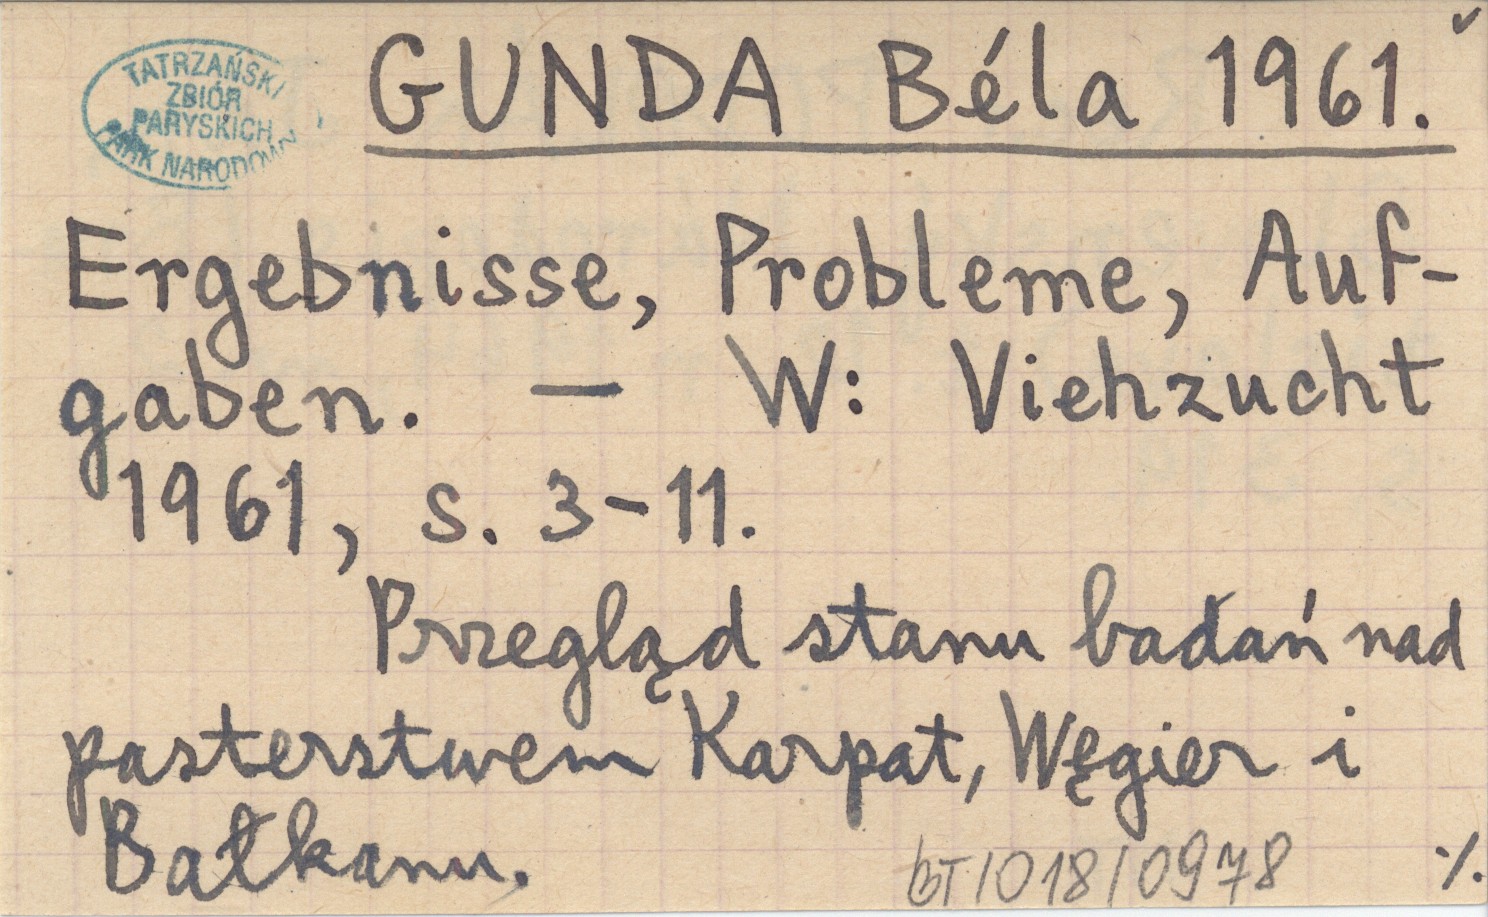 TATRZAŃSKI
ZBIÓR
PARYSKICH
PARK NARODOWY
GUNDA Béla 1961.
Ergebnisse, Probleme, Auf-
gaben. — W: Viehzucht
1961, s. 3-11.
Przegląd stanu badań nad
pasterstwem Karpat, Węgier i
Bałkanu.
BT/018/0978
·/.